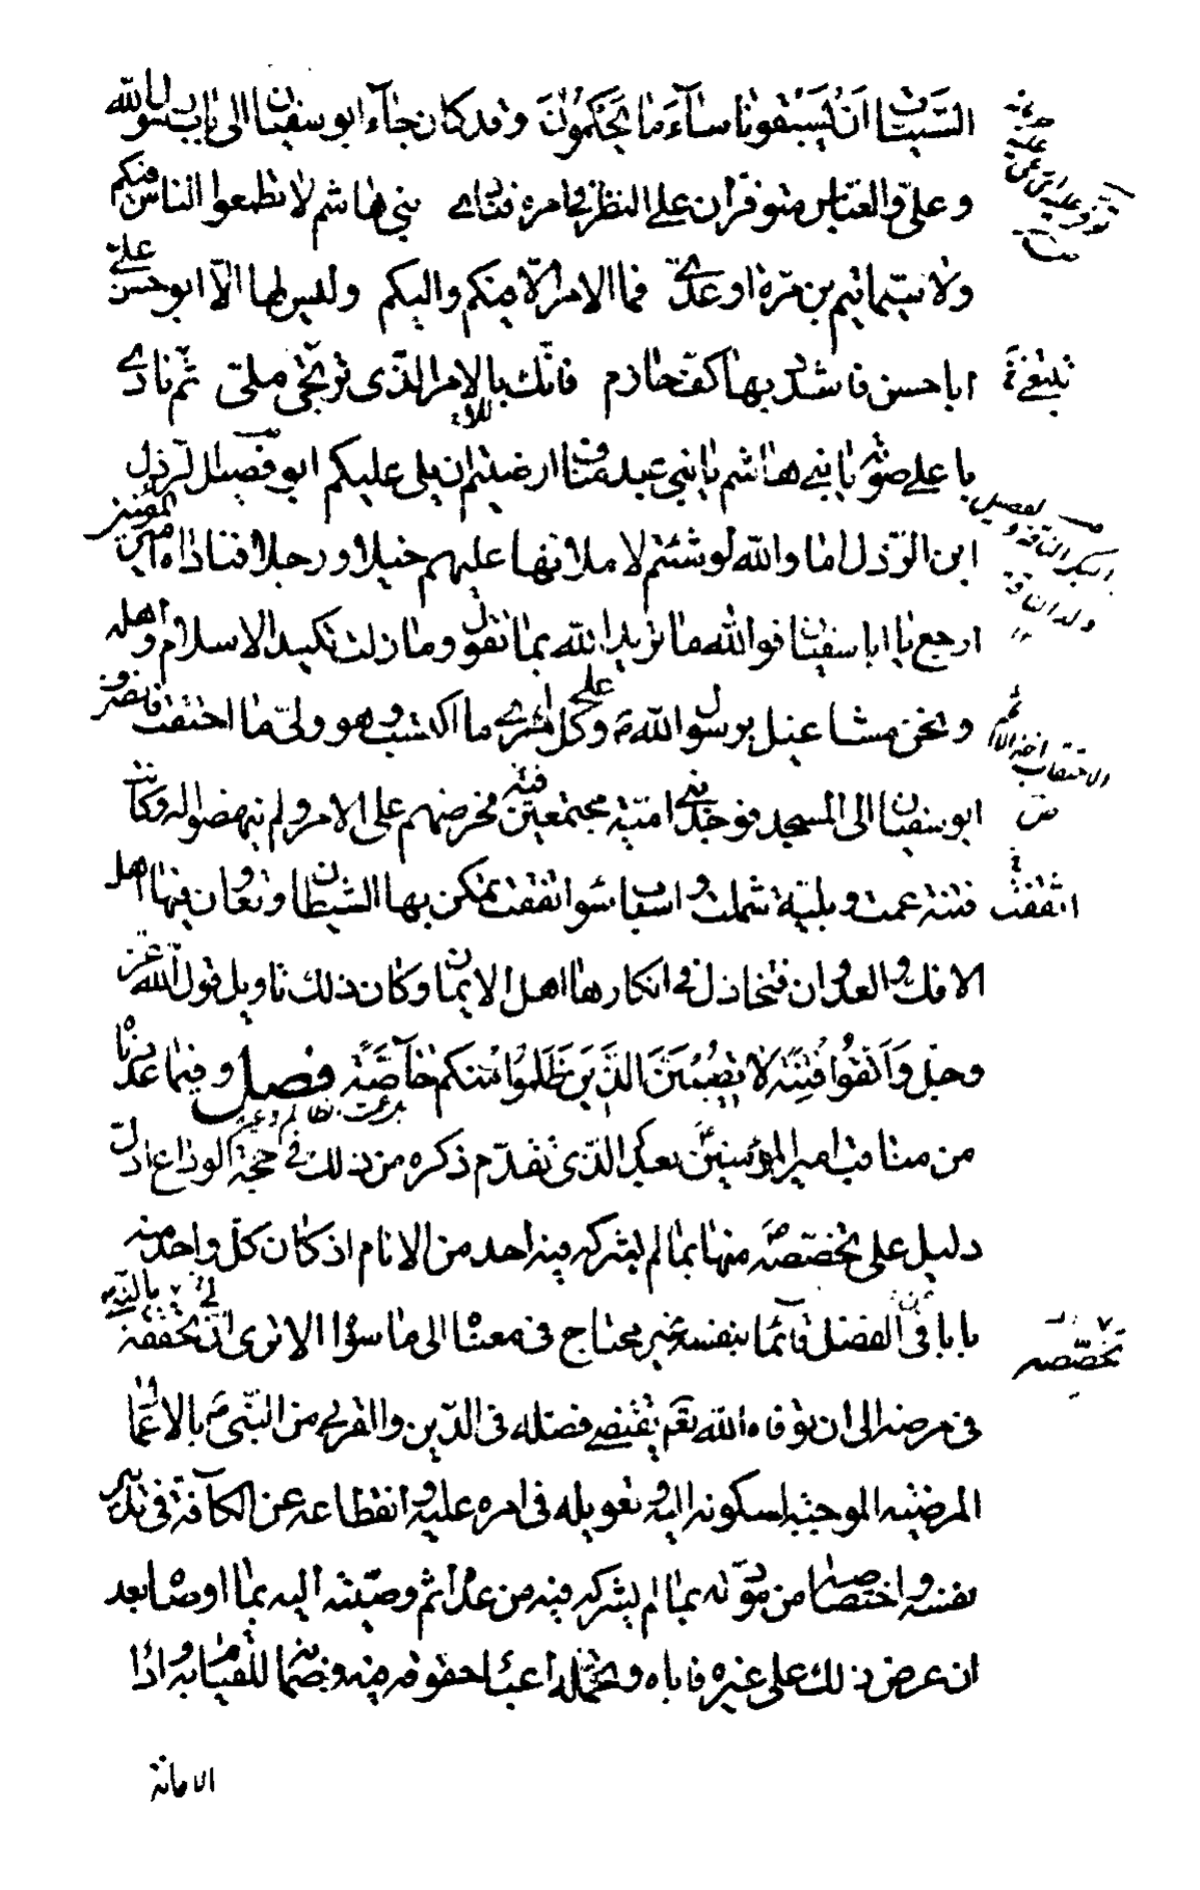 السَّيِّئَاتِ اَنْ يَسْبِقُونَا سَآءَ مَا يَحْكُمُونَ وقد كان جآء ابو سفيان الى باب رسول الله
وعلىّ والعباس متوفران على النظر في امره فنادى بنى هاشم لا تطمعوا الناس فيكم
ولا سيّما تيم بن مرة او عدىّ فما الامر الّا فيكم واليكم وليس لها الّا ابو حسن علىّ
ابا حسن فاشدد بها كف حازم فانّك بالامر الّذى ترتجى ملىّ ثم نادى
يا على صوته يا بنى هاشم يا بنى عبد مناف ارضيتم ان يلى عليكم ابو فصيل الرذل
ابن الرّذل اما والله لو شئتم لاملانها عليهم خيلا ورجلا فناداه امير المؤمنين
ارجع يا ابا سفيان فوالله ما تريد الله بما تقول وما زلت تكيد الاسلام واهله
ونحن مشاغيل برسول الله ص وعلى كل امرى ما اكتسب وهو ولىّ ما احتقب فانصرف
ابو سفيان الى المسجد فوجد بنى امية مجتمعين فيه فحرضهم على الامر ولم ينهضوا له وكانت
فتنة عمت وبلية شملت واسباب سوء اتفقت تمكن بها الشيطان وتعاون فيها اهل
الافك والعدوان فتخاذل فى انكارها اهل الايمان وكان ذلك تاويل قول الله عزّ
وجل وَاتَّقُوا فِتْنَةً لَا تُصِيبَنَّ الَّذِينَ ظَلَمُوا مِنْكُمْ خَآصَّةً فصل وفيما عددناه
من مناقب امير المؤمنين بعد الذى تقدّم ذكره من ذلك فى حجة الوداع ادلّ
دليل على تخصّصه ع منها بما لم يشركه فيه احد من الانام اذ كان كلّ واحد منه
بابا فى الفضل قآئما بنفسه غير محتاج فى معناه الى ما سواه الا ترى انّ تحققه بالنبى
فى مرضه الى ان توفاه الله تعم يقتضى فضله فى الدّين والقربى من النّبىّ ص بالاعمال
المرضيّة الموجبة لسكونه اليه وتعويله فى امره عليه وانقطاعه عن الكآفة فى تدبير
نفسه واختصاصه من مودّته بما لم يشركه فيه من عداه ثم وصيّته اليه بما اوصاه بعد
ان عرض ذلك على غيره فاباه وتحمّله اعباء حقوقه فيه وضمانه للقيام به واداء
الامانة
تبتغى
اتفقت
تخصّصه